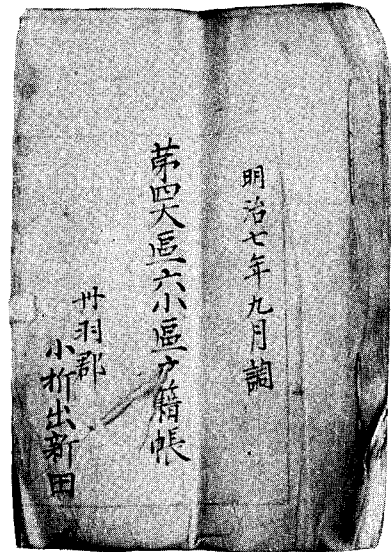 明治七年九月調
第四大區六小區戸籍帳
丹羽郡
小折出新田